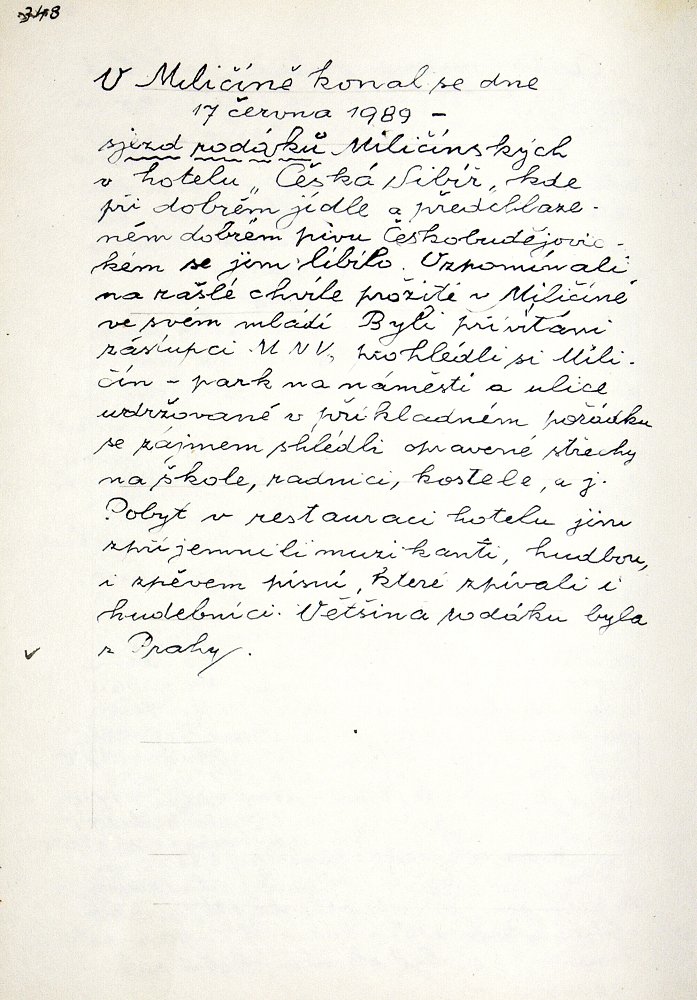 348
V Miličíně konal se dne
17 června 1989 -
sjezd rodáků Miličínských
v hotelu „Česká Sibiř„ kde
při dobrém jídle a předchlaze-
ném dobrém pivu Českobudějovic-
kém se jim líbilo. Vzpomínali
na zašlé chvíle prožité v Miličíně
ve svém mládí Byli přivítáni
zástupci MNV, prohlédli si Mili-
čín - park na náměstí a ulice
udržované v příkladném pořádku
se zájmem shlédli opravené střechy
na škole, radnici, kostele, a j.
Pobyt v restauraci hotelu jim
zpříjemnili muzikanti, hudbou,
i zpěvem písní, které zpívali i
hudebníci. Většina rodáku byla
z Prahy.